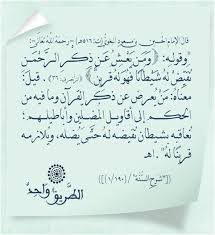 قال الإمام الحسين بن مسعود البغوي (ت: ٥١٦هـ) -رحمه الله تعالى-:
"وقوله: ﴿وَمَن يَعْشُ عَن ذِكْرِ الرَّحْمَنِ
نُقَيِّضْ لَهُ شَيْطَانًا فَهُوَ لَهُ قَرِينٌ﴾ (الزخرف: ٣٦). قيل:
معناه: مَن يُعرض عن ذكر القرآن وما فيه من
الحكم إلى أقاويل المضلين وأباطيلهم؛
نعاقبه بشيطان نقيضه له حتى يُضله، ويلازمه
قرينًا له". اهـ
[["شرح السنة" (١/١٩٠)]]
الطريق واحد